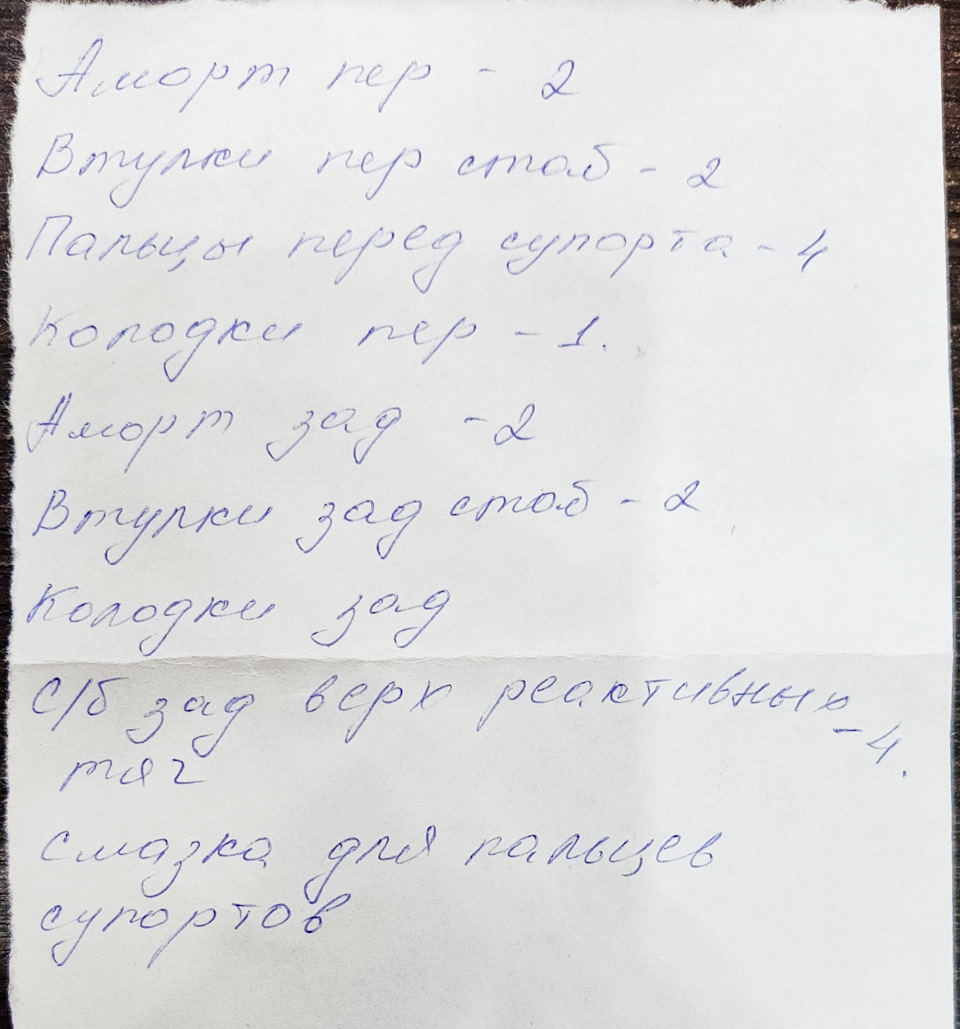 Аморт пер - 2
Втулки пер стаб - 2
Пальцы перед супорта - 4
Колодки пер - 1.
Аморт зад - 2
Втулки зад стаб - 2
Колодки зад
С/б зад верх реактивных - 4.
тяг
Смазка для пальцев
супортов